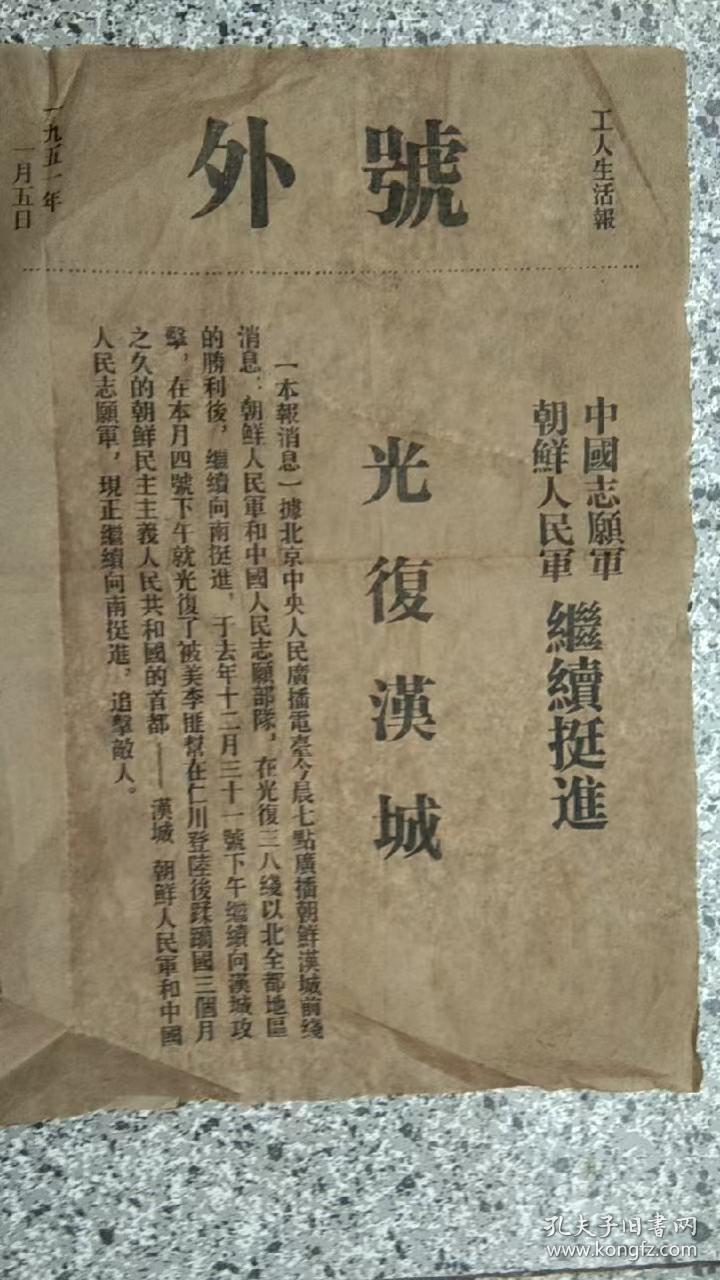 工人生活報
號外
一九五一年
一月五日
中國志願軍
朝鮮人民軍
繼續挺進
光復漢城
一本報消息一據北京中央人民廣播電臺今晨七點廣播朝鮮漢城前綫
消息：朝鮮人民軍和中國人民志願部隊，在光復三八綫以北全部地區
的勝利後，繼續向南挺進，于去年十二月三十一號下午繼續向漢城攻
擊，在本月四號下午就光復了被美李匪幫在仁川登陸後蹂躪國三個月
之久的朝鮮民主主義人民共和國的首都——漢城 朝鮮人民軍和中國
人民志願軍，現正繼續向南挺進，追擊敵人。
孔夫子旧書网
www.kongfz.com